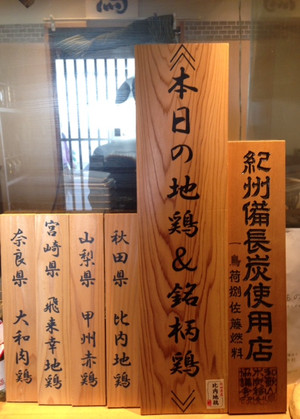 紀州備長炭使用店
鳥荷捌佐藤燃料
≪本日の地鶏&銘柄鶏≫
比内地鶏
秋田県 比内地鶏
山梨県 甲州赤鶏
宮崎県 飛来幸地鶏
奈良県 大和肉鶏